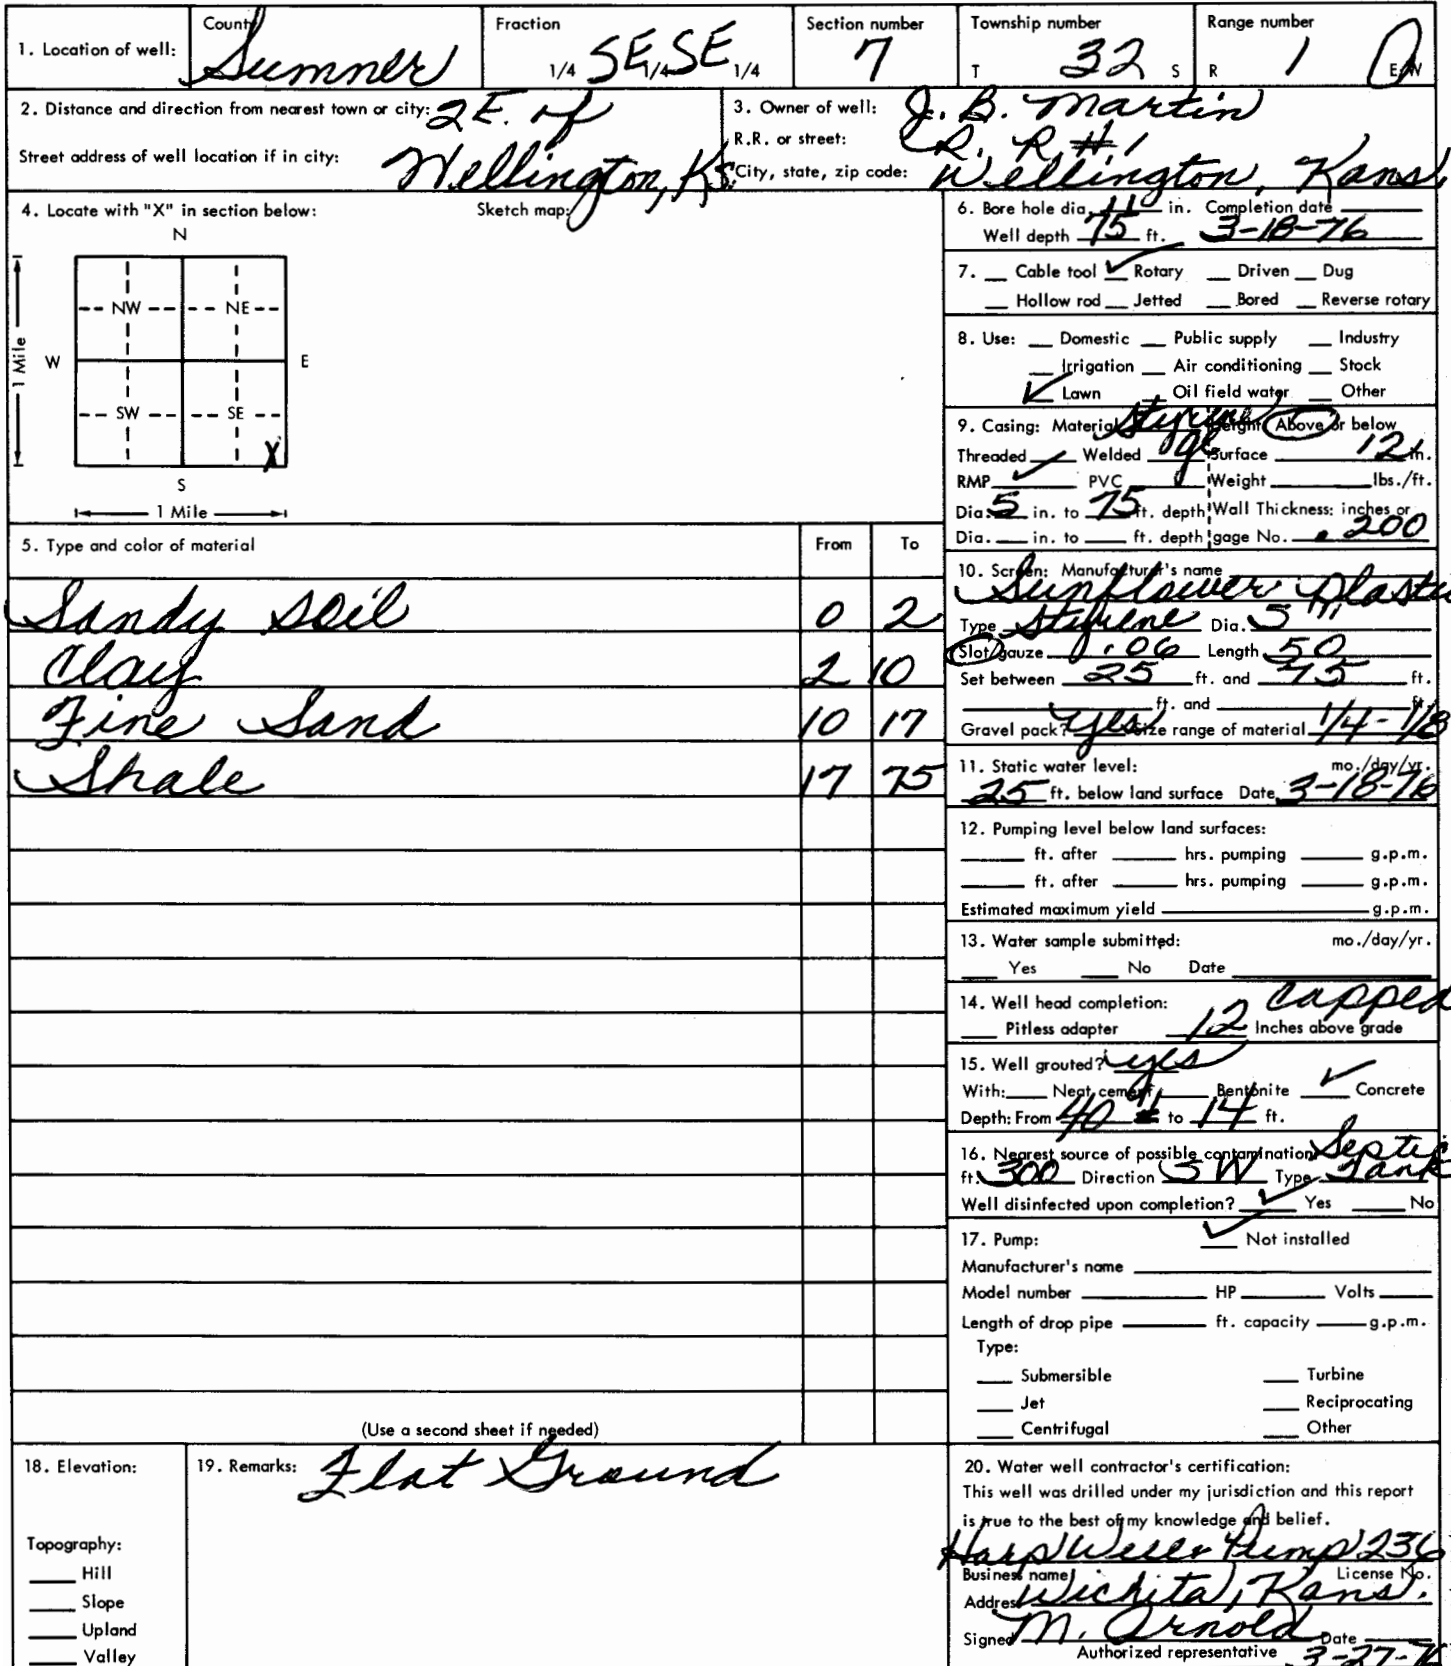 1. Location of well: County Sumner Fraction 1/4 SE 1/4 SE 1/4 Section number 7 Township number T 32 S Range number R 1 E/W
2. Distance and direction from nearest town or city: 2 E. of
Street address of well location if in city: Wellington, Ks.
3. Owner of well: J. B. Martin
R.R. or street: R. R #1
City, state, zip code: Wellington, Kans.
4. Locate with "X" in section below: Sketch map:
N
NW NE
W E
1 Mile
SW SE
X
S
1 Mile
5. Type and color of material From To
Sandy Soil 0 2
Clay 2 10
Fine Sand 10 17
Shale 17 75
(Use a second sheet if needed)
6. Bore hole dia. 11 in. Completion date
Well depth 75 ft. 3-18-76
7. Cable tool ✓ Rotary Driven Dug
Hollow rod Jetted Bored Reverse rotary
8. Use: Domestic Public supply Industry
Irrigation Air conditioning Stock
✓ Lawn Oil field water Other
9. Casing: Material Styrene Height: Above or below
Threaded Welded Surface 12 in.
RMP ✓ PVC Weight lbs./ft.
Dia. 5 in. to 75 ft. depth Wall Thickness: inches or
Dia. in. to ft. depth gage No. .200
10. Screen: Manufacturer's name
Sunflower Plastic
Type Styrene Dia. 5"
Slot/gauze .06 Length 50
Set between 25 ft. and 75 ft.
ft. and ft.
Gravel pack? yes Size range of material 1/4-1/8
11. Static water level: mo./day/yr.
25 ft. below land surface Date 3-18-76
12. Pumping level below land surfaces:
ft. after hrs. pumping g.p.m.
ft. after hrs. pumping g.p.m.
Estimated maximum yield g.p.m.
13. Water sample submitted: mo./day/yr.
Yes No Date
14. Well head completion: capped
Pitless adapter 12 Inches above grade
15. Well grouted? yes
With: Neat cement Bentonite ✓ Concrete
Depth: From 40" to 14 ft.
16. Nearest source of possible contamination: Septic
ft. 300 Direction SW Type Tank
Well disinfected upon completion? ✓ Yes No
17. Pump: ✓ Not installed
Manufacturer's name
Model number HP Volts
Length of drop pipe ft. capacity g.p.m.
Type:
Submersible Turbine
Jet Reciprocating
Centrifugal Other
18. Elevation:
Topography:
Hill
Slope
Upland
Valley
19. Remarks: Flat Ground
20. Water well contractor's certification:
This well was drilled under my jurisdiction and this report
is true to the best of my knowledge and belief.
Harp Well & Pump 236
Business name License No.
Address Wichita, Kans.
Signed M. Arnold Date
Authorized representative 3-27-76